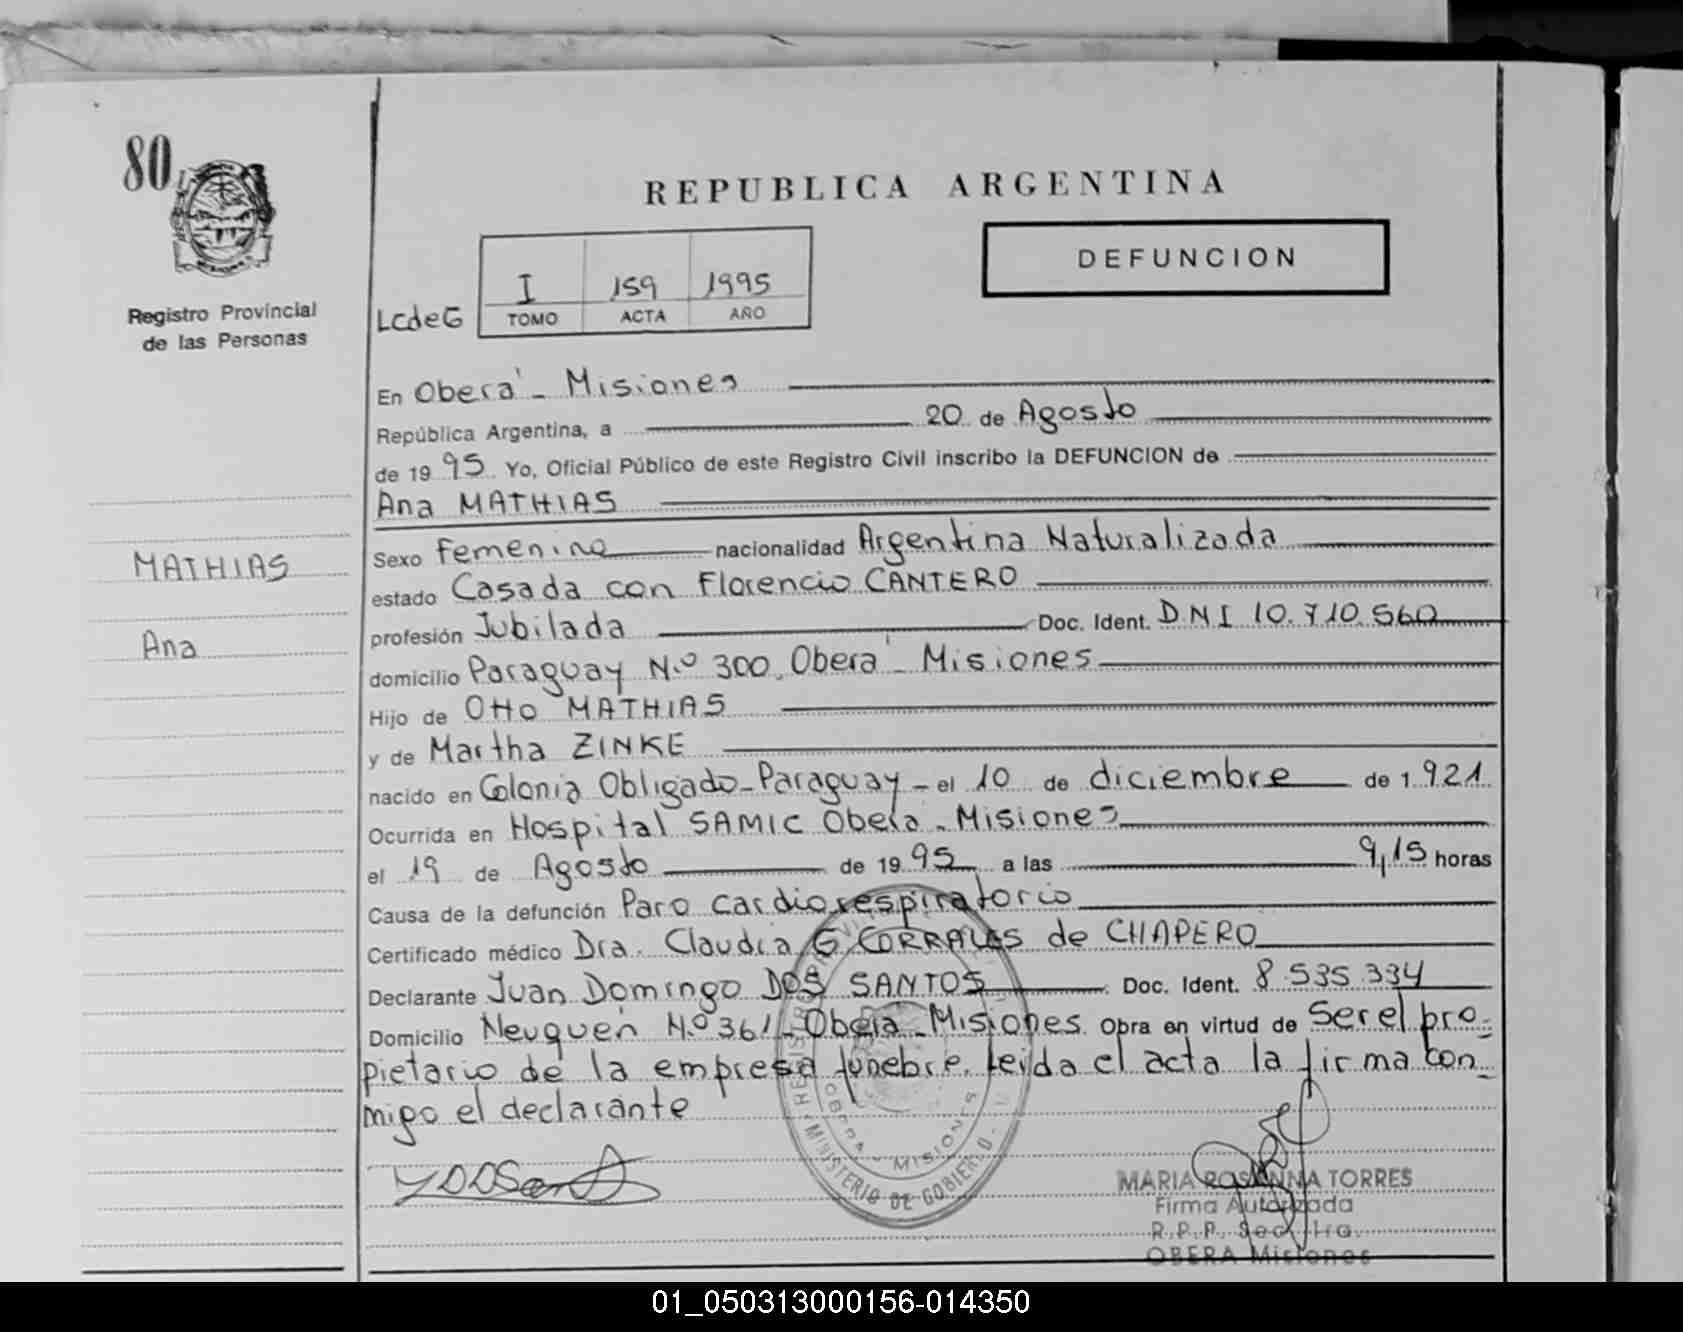 80
REPUBLICA ARGENTINA
DEFUNCION
I 159 1995
LCdeG TOMO ACTA AÑO
Registro Provincial
de las Personas
En Oberá - Misiones
República Argentina, a 20 de Agosto
de 19 95 Yo, Oficial Público de este Registro Civil inscribo la DEFUNCION de
Ana MATHIAS
MATHIAS
Ana
Sexo Femenino nacionalidad Argentina Naturalizada
estado Casada con Florencio CANTERO
profesión Jubilada Doc. Ident. DNI 10.710.560
domicilio Paraguay N.º 300, Oberá - Misiones
Hijo de Otto MATHIAS
y de Martha ZINKE
nacido en Colonia Obligado - Paraguay - el 10 de diciembre de 1.921
Ocurrida en Hospital SAMIC Oberá - Misiones
el 19 de Agosto de 19 95 a las 9,15 horas
Causa de la defunción Paro cardiorespiratorio
Certificado médico Dra. Claudia G CORRALES de CHAPERO
Declarante Juan Domingo DOS SANTOS Doc. Ident. 8.535.334
Domicilio Neuquén N.º 361 - Oberá - Misiones Obra en virtud de Ser el pro-
pietario de la empresa fúnebre. Leida el acta la firma con-
migo el declarante
MINISTERIO DE GOBIERNO
OBERA - MISIONES
MARIA ROSANNA TORRES
Firma Autorizada
R.P.P. Secc. 1ra.
OBERA Misiones
01_050313000156-014350